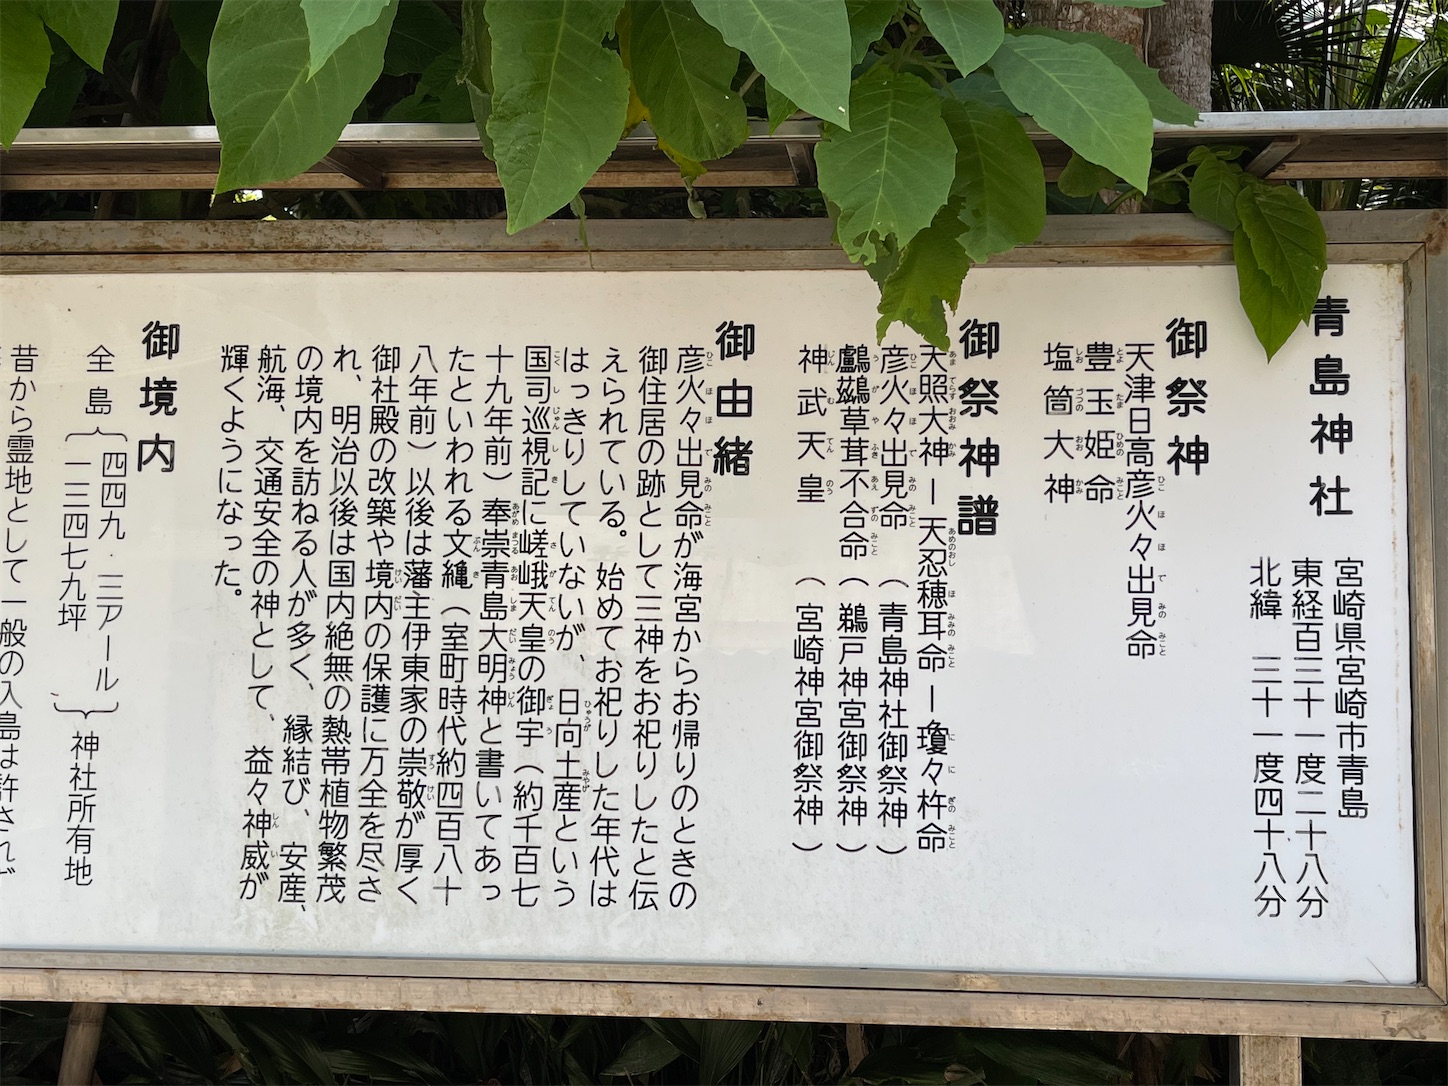 青島神社
宮崎県宮崎市青島
東経百三十一度二十八分
北緯　三十一度四十八分
御祭神
天津日高彦火々出見命
豊玉姫命
塩筒大神
御祭神譜
天照大神ー天忍穂耳命ー瓊々杵命
彦火々出見命（青島神社御祭神）
鸕鷀草茸不合命（鵜戸神宮御祭神）
神武天皇（宮崎神宮御祭神）
御由緒
彦火々出見命が海宮からお帰りのときの
御住居の跡として三神をお祀りしたと伝
えられている。始めてお祀りした年代は
はっきりしていないが、日向土産という
国司巡視記に嵯峨天皇の御宇（約千百七
十九年前）奉崇青島大明神と書いてあっ
たといわれる文亀（室町時代約四百八十
八年前）以後は藩主伊東家の崇敬が厚く
御社殿の改築や境内の保護に万全を尽さ
れ、明治以後は国内絶無の熱帯植物繁茂
の境内を訪ねる人が多く、縁結び、安産、
航海、交通安全の神として、益々神威が
輝くようになった。
御境内
全島｛四四九・三アール
一三四七九坪｝神社所有地
昔から霊地として一般の入島は許され